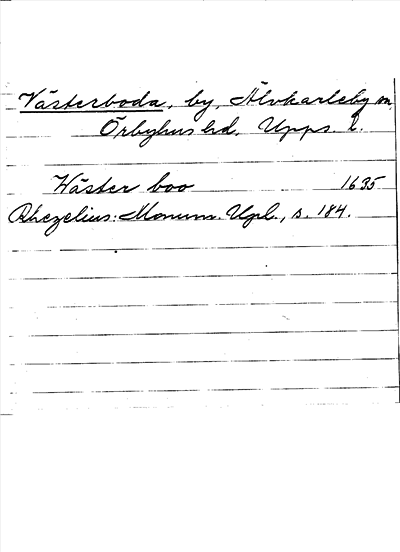 Västerboda, by, Älvkarleby sn,
Örbyhus hd, Upps. l.
Wäster boo 1635
Rhezelius: Monum. Upl., s. 184.